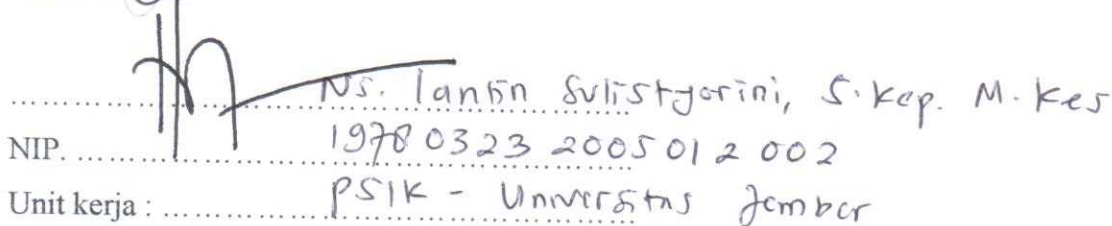 Ns. Iantin Sulistyorini, S.Kep. M.Kes
NIP. 19780323 200501 2 002
Unit kerja : PSIK - Universitas Jember